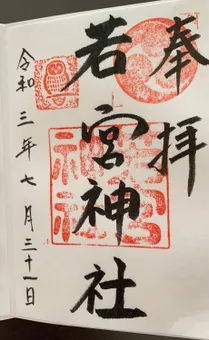 奉拝
若宮神社
令和三年七月三十一日